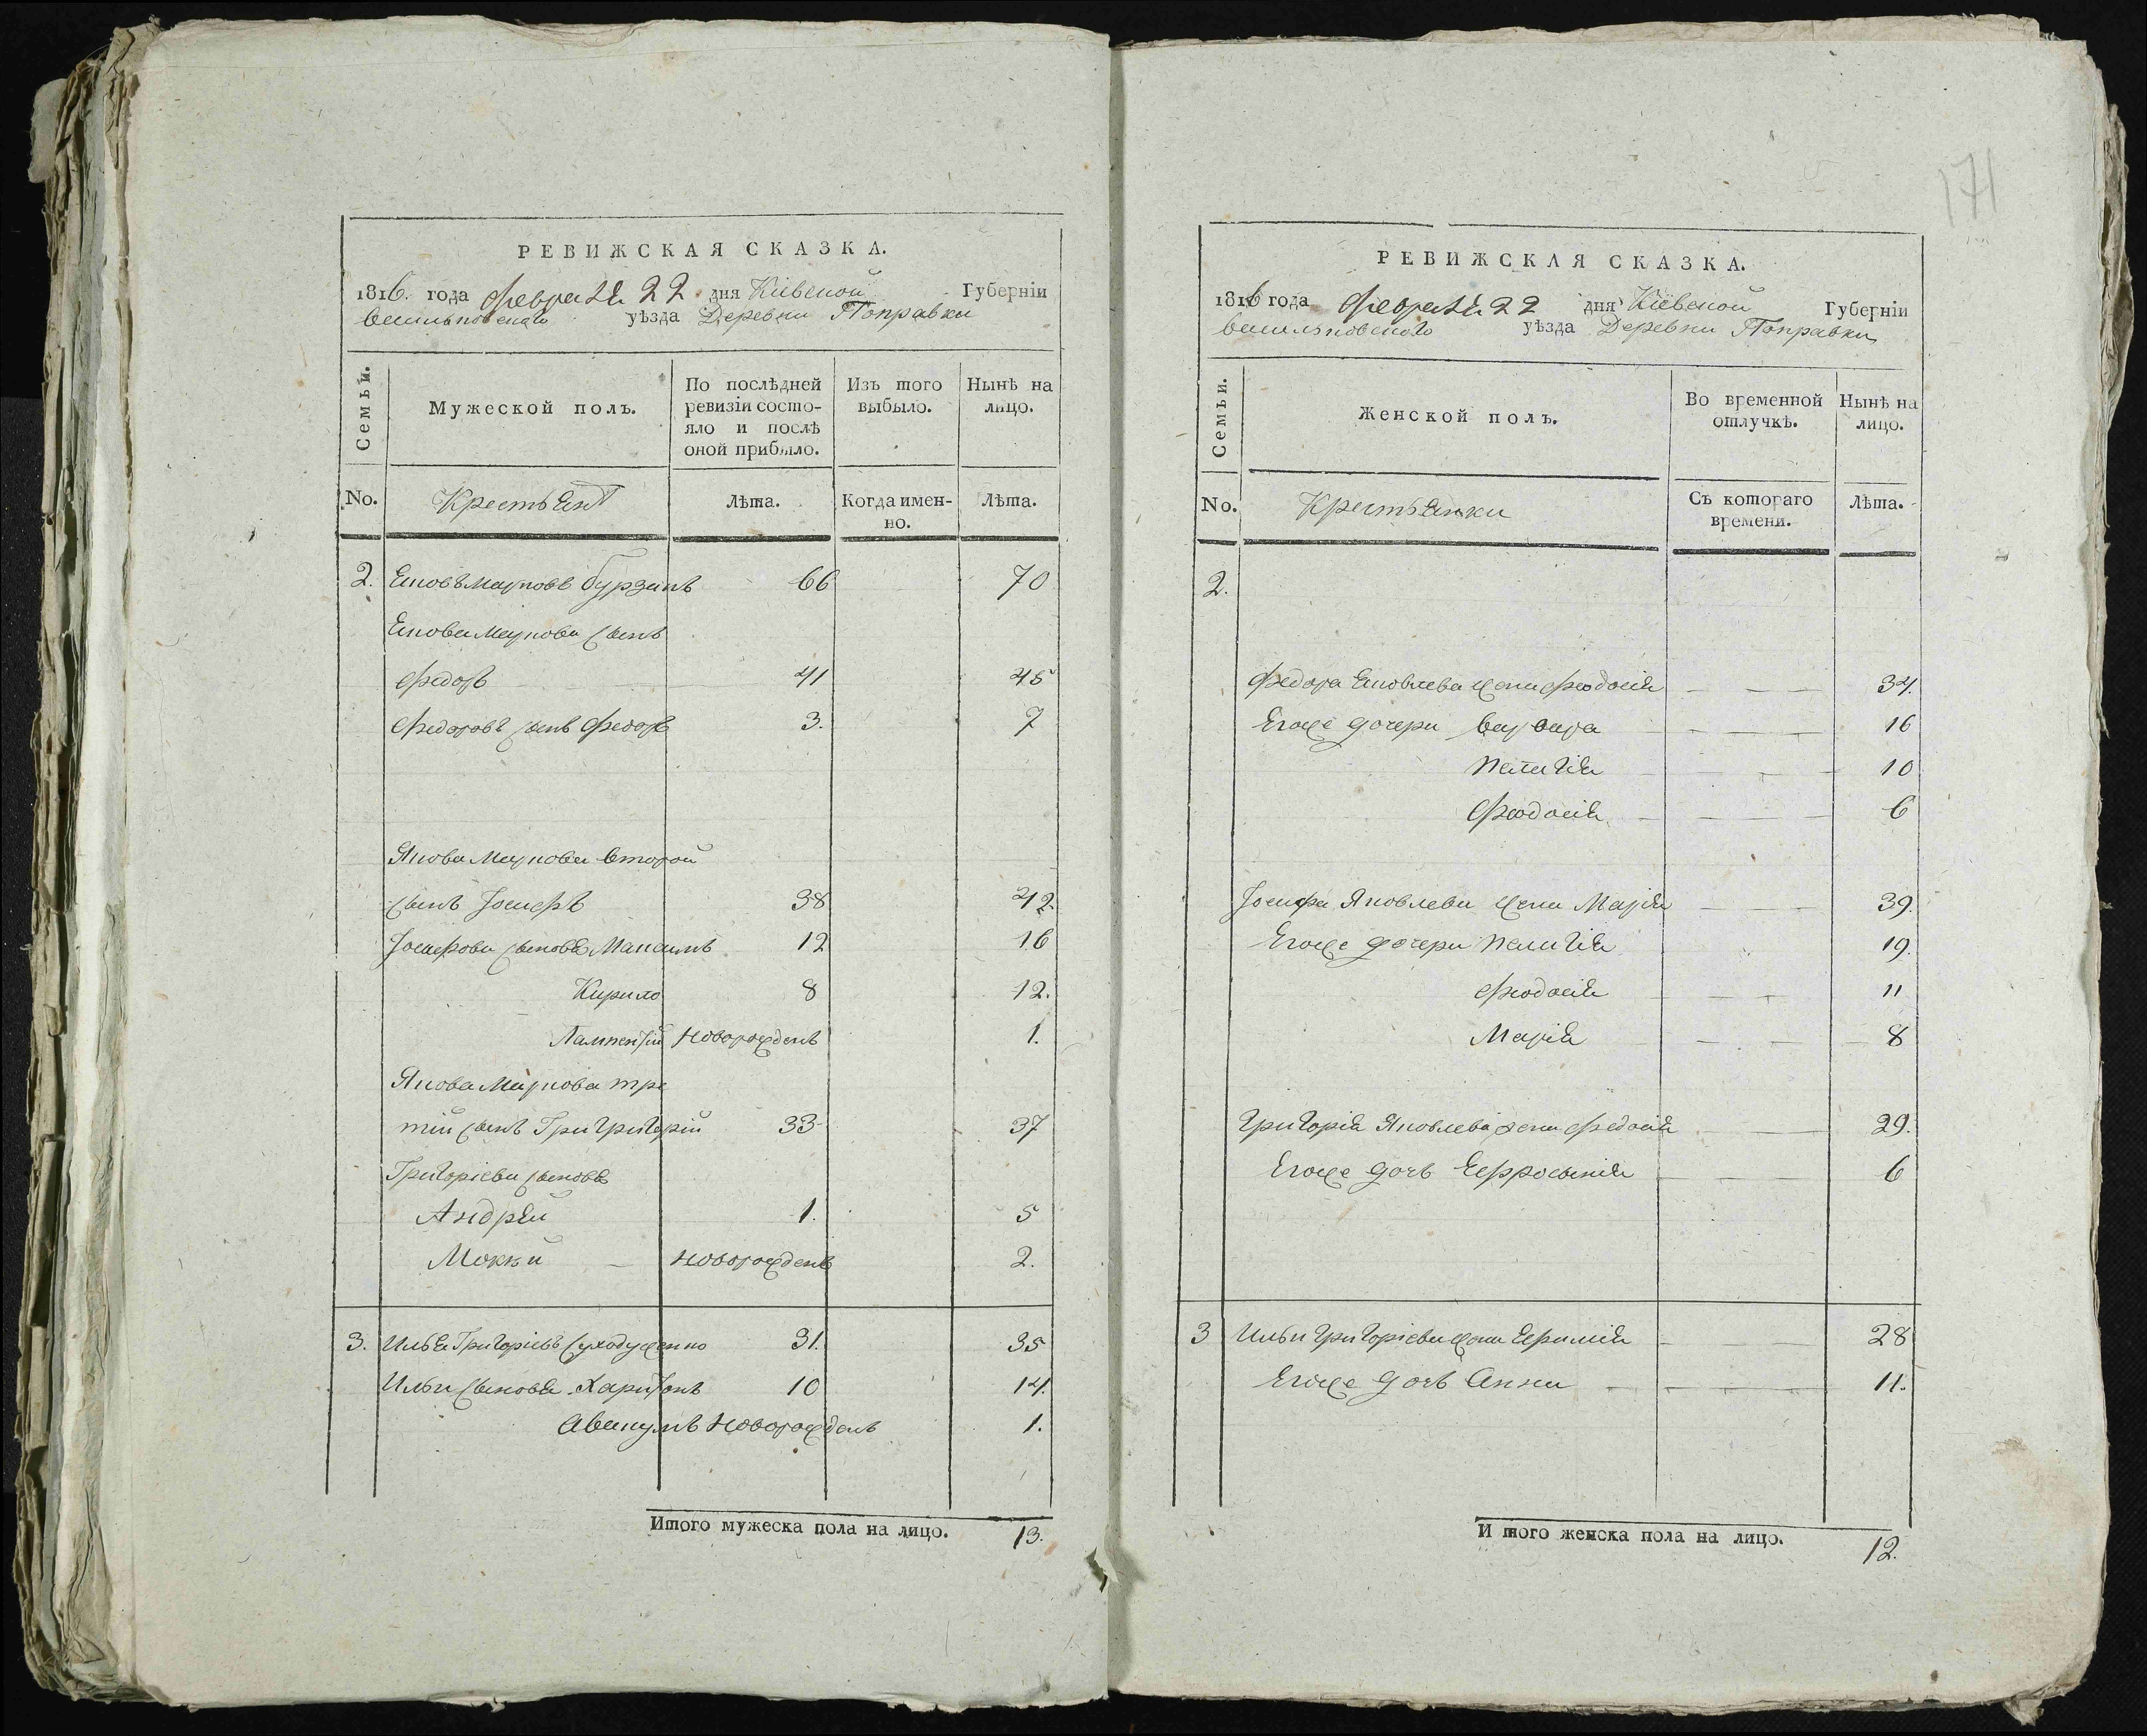 171
РЕВИЖСКАЯ СКАЗКА.
1816. года Февраля 22 дня Кіевской Губерніи
Васильковского уѣзда Деревни Поправки
Семьи.
Мужеской полъ.
По послѣдней ревизіи состо-
яло и послѣ
оной прибыло.
Изъ того
выбыло.
Нынѣ на
лицо.
No.
Крестьянъ
Лѣта.
Когда имен-
но.
Лѣта.
2. Яковъ Марковъ 66 70
Якова Маркова сынъ
Федоръ 41 45
Федоровъ сынъ Федоръ 3. 7
Якова Маркова второй
сынъ Іосифъ 38 42
Іосифовы сыновья Максимъ 12 16
Кирило 8 12.
новорожденъ 1.
Якова Маркова тре
тій сынъ Григригорій 33 37
Григоріевы сыновья
Андрей 1. 5
Мокѣй — новорожденъ 2.
3. Илья Григорьевъ 31. 35
Ильи сыновья Харитонъ 10 14.
Авакумъ новорожденъ 1.
Итого мужеска пола на лицо. 13.
РЕВИЖСКАЯ СКАЗКА.
1816 года Февраля 22 дня Кіевской Губерніи
Васильковского уѣзда Деревни Поправки
Семьи.
Женской полъ.
Во временной
отлучкѣ.
Нынѣ на
лицо.
No.
Крестьянки
Съ котораго
времени.
Лѣта.
2.
Федора Яковлева жена Феодосія 34.
Егоже дочери Варвара 16
Пелагія 10
Феодосія 6
Іосифа Яковлева жена Марія 39.
Егоже дочери Пелагія 19.
Феодосія 11
Марія 8
Григорія Яковлева жена Федосія 29.
Егоже дочь Ефросинія 6
3 Ильи Григоріева жена Ефимія 28
Егоже дочь Анна 11.
Итого женска пола на лицо. 12.